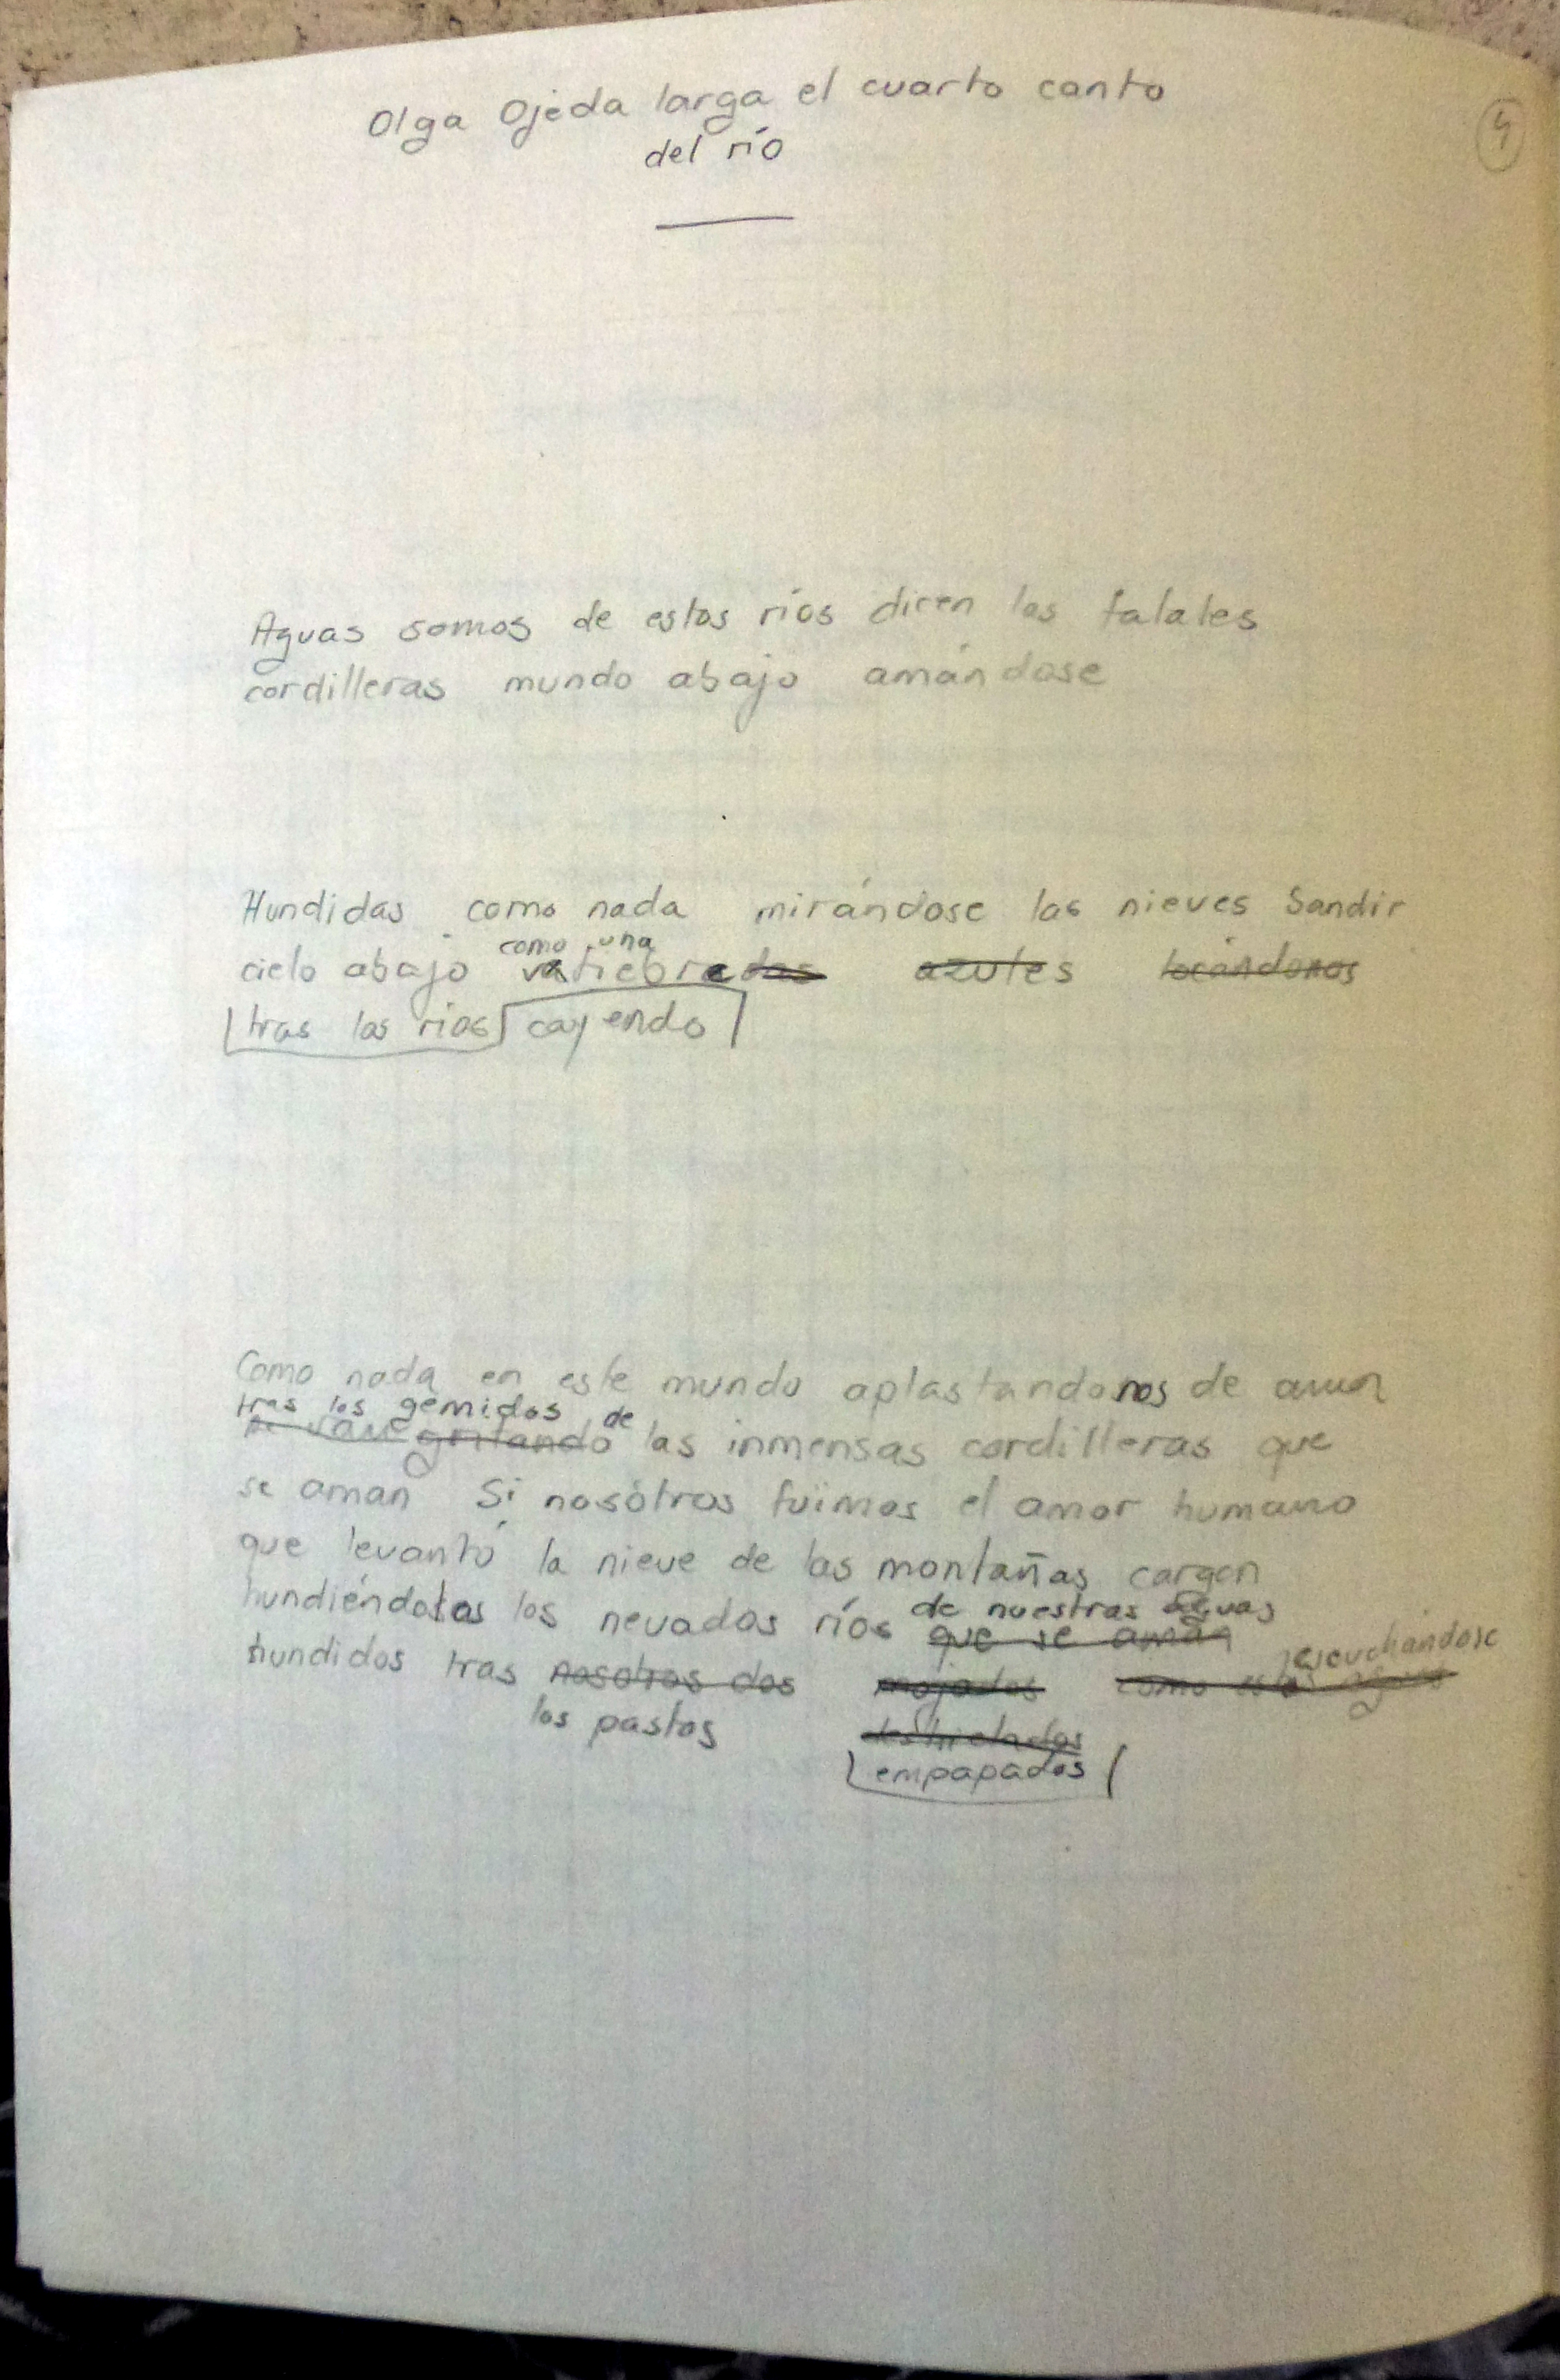 Olga Ojeda larga el cuarto canto
4
del río
Aguas somos de estos ríos dicen los talales
cordilleras mundo abajo amándose
Hundidas como nada mirándose las nieves Sandir
como una
cielo abajo fiebre azules tocándonos
tras los ríos cayendo
Como nada en este mundo aplastandonos de amor
tras los gemidos de
gritando las inmensas cordilleras que
se aman Si nosotros fuimos el amor humano
que levantó la nieve de las montañas cargen
hundiéndolas los nevados ríos de nuestras aguas
que se aman
escuchándose
hundidos tras nosotros dos mojados como esta
los pastos deshielados
empapados